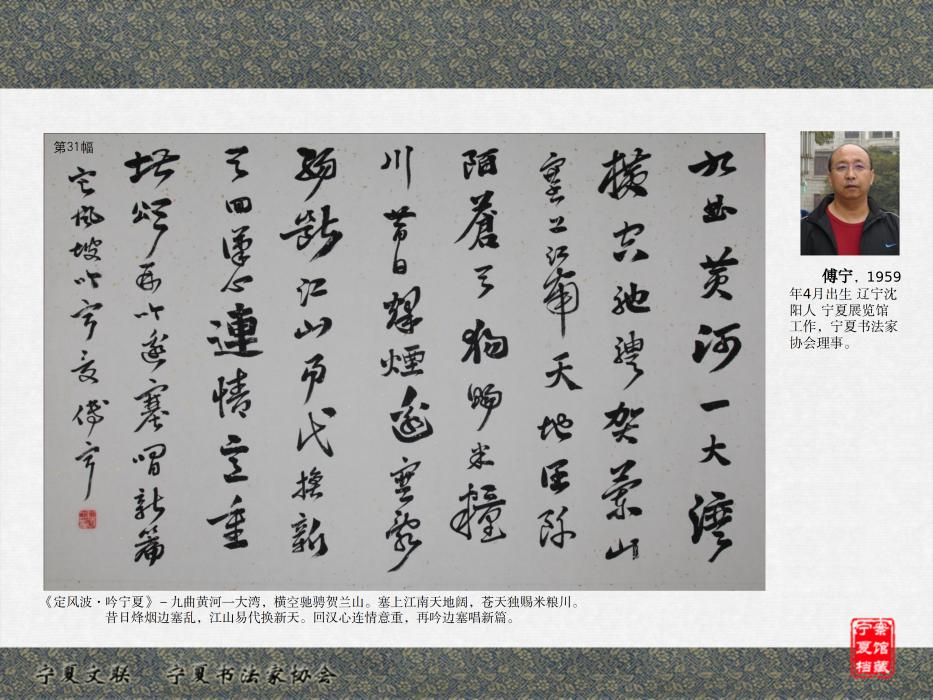 第31幅
九曲黄河一大灣
横空驰骋贺蘭山
塞上江南天地
陌蒼天独賜米糧
川昔日烽煙邊塞亂
江山易代换新
天回漢心連情意重
頌再吟邊塞唱新篇
定风坡吟宁夏傅宁
傅宁，1959
年4月出生 辽宁沈
阳人 宁夏展览馆
工作，宁夏书法家
协会理事。
《定风波·吟宁夏》–九曲黄河一大湾，横空驰骋贺兰山。塞上江南天地阔，苍天独赐米粮川。
昔日烽烟边塞乱，江山易代换新天。回汉心连情意重，再吟边塞唱新篇。
宁夏文联 宁夏书法家协会
宁夏档
案馆藏